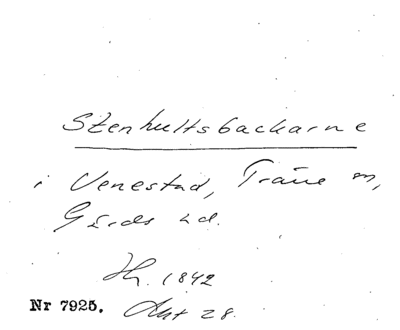 Stenhultsbackarne
i Venestad, Träne sn,
Gärds hd.
Hz. 1842
Nr 7925. Akt 28.